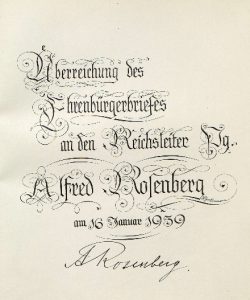 Überreichung des
Ehrenbürgerbriefes
an den Reichsleiter Pg.
Alfred Rosenberg
am 16 Januar 1939
A Rosenberg.